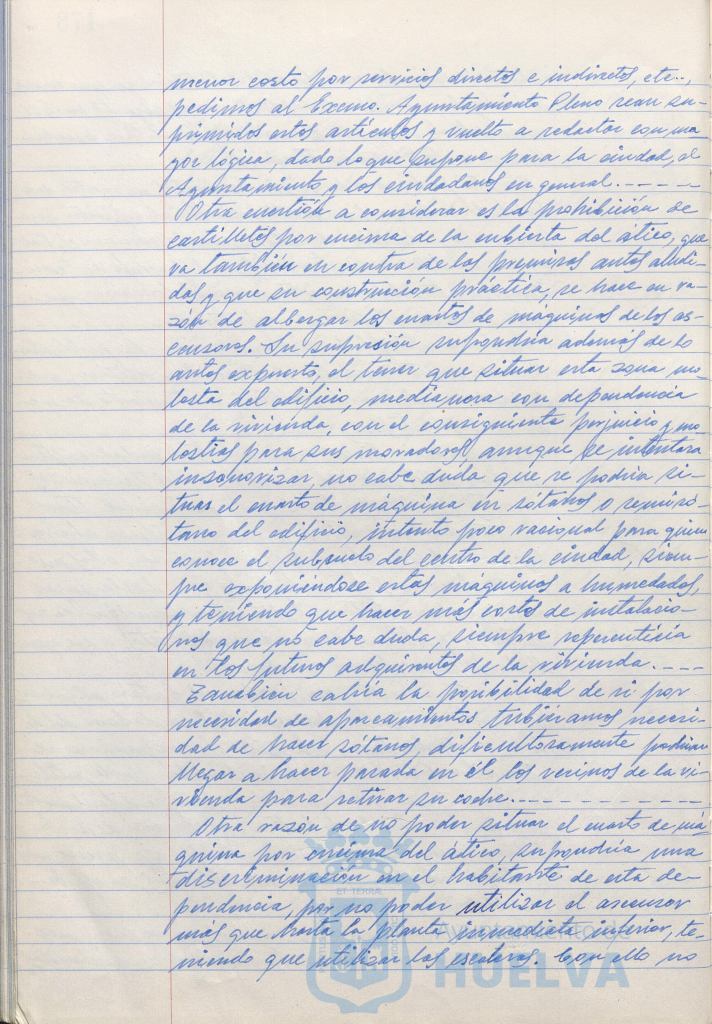 menor costo por servicios directos e indirectos, etc..,
pedimos al Excmo. Ayuntamiento Pleno sean su-
primidos estos artículos y vuelto a redactar con ma
yor lógica, dado lo que supone para la ciudad, el
Ayuntamiento y los ciudadanos en general.-----
Otra cuestión a considerar es la prohibición de
castilletes por encima de la cubierta del ático, que
va también en contra de las premisas antes aludi-
das y que su construcción práctica, se hace en ra-
zón de albergar los cuartos de máquinas de los as-
censores. Su supresión supondría además de lo
antes expuesto, el tener que situar esta zona mo-
lesta del edificio, medianera con dependencia
de la vivienda, con el consiguiente perjuicio y mo-
lestias para sus moradores, aunque se intentara
insonorizar, no cabe duda que se podría si-
tuar el cuarto de máquina en sótanos o semisó-
tano del edificio, intento poco racional para quien
conoce el subsuelo del centro de la ciudad, siem-
pre exponiéndose estas máquinas a humedades,
y teniendo que hacer más costos de instalacio-
nes que no cabe duda, siempre repercutiría
en los futuros adquirentes de la vivienda.----
También cabría la posibilidad de si por
necesidad de aparcamientos tubiéramos necesi-
dad de hacer sótanos, dificultosamente podrían
llegar a hacer parada en él los vecinos de la vi-
vienda para retirar su coche.-----------
Otra razón de no poder situar el cuarto de má
quina por encima del ático, supondría una
discriminación en el habitante de esta de-
pendencia, por no poder utilizar el ascensor
más que hasta la planta inmediata inferior, te-
niendo que utilizar las escaleras. Con ello no
ET TERRÆ
HUELVA